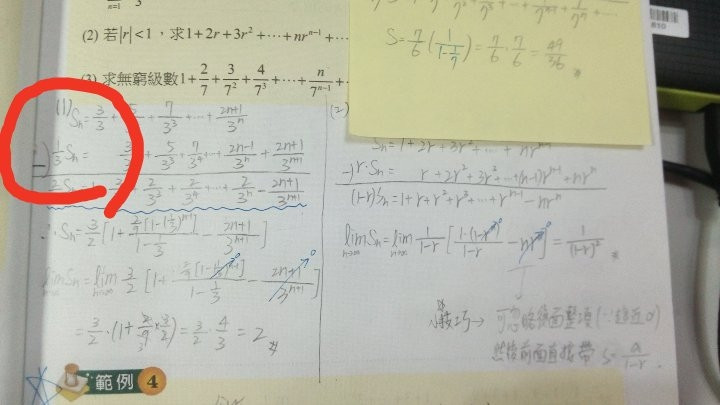 n=1 3
(2) 若|r|<1,求1+2r+3r²+⋯+nrⁿ⁻¹+⋯
(3) 求無窮級數1+2/7+3/7²+4/7³+⋯+n/7ⁿ⁻¹+⋯
S=7/6(1/(1-1/7))=7/6·7/6=49/36
(1) Sn=3/3+5/+7/3³+⋯+(2n+1)/3ⁿ
-) 1/3Sn= 3/+5/3³+7/3⁴+⋯+(2n-1)/3ⁿ+(2n+1)/3ⁿ⁺¹
2/3Sn=1+2/+2/3³+2/3⁴+⋯+2/3ⁿ-(2n+1)/3ⁿ⁺¹
∴Sn=3/2[1+2/9[1-(1/3)ⁿ⁻¹]/(1-1/3)-(2n+1)/3ⁿ⁺¹]
lim n→∞ Sn=lim n→∞ 3/2[1+2/9[1-(1/3)ⁿ⁻¹]/(1-1/3)-(2n+1)/3ⁿ⁺¹]
=3/2·(1+2/9×3/2)=3/2·4/3=2
(2)
Sn=1+2r+3r²+⋯+nrⁿ⁻¹
-) r·Sn= r+2r²+3r³+⋯+(n-1)rⁿ⁻¹+nrⁿ
(1-r)Sn=1+r+r²+r³+⋯+rⁿ⁻¹-nrⁿ
lim n→∞ Sn=lim n→∞ 1/(1-r)[1·(1-rⁿ)/(1-r)-nrⁿ]=1/(1-r)²
小技巧→ 可忽略後面整項(∵趨近0)
然後前面直接帶 S=a/(1-r).
範例 4